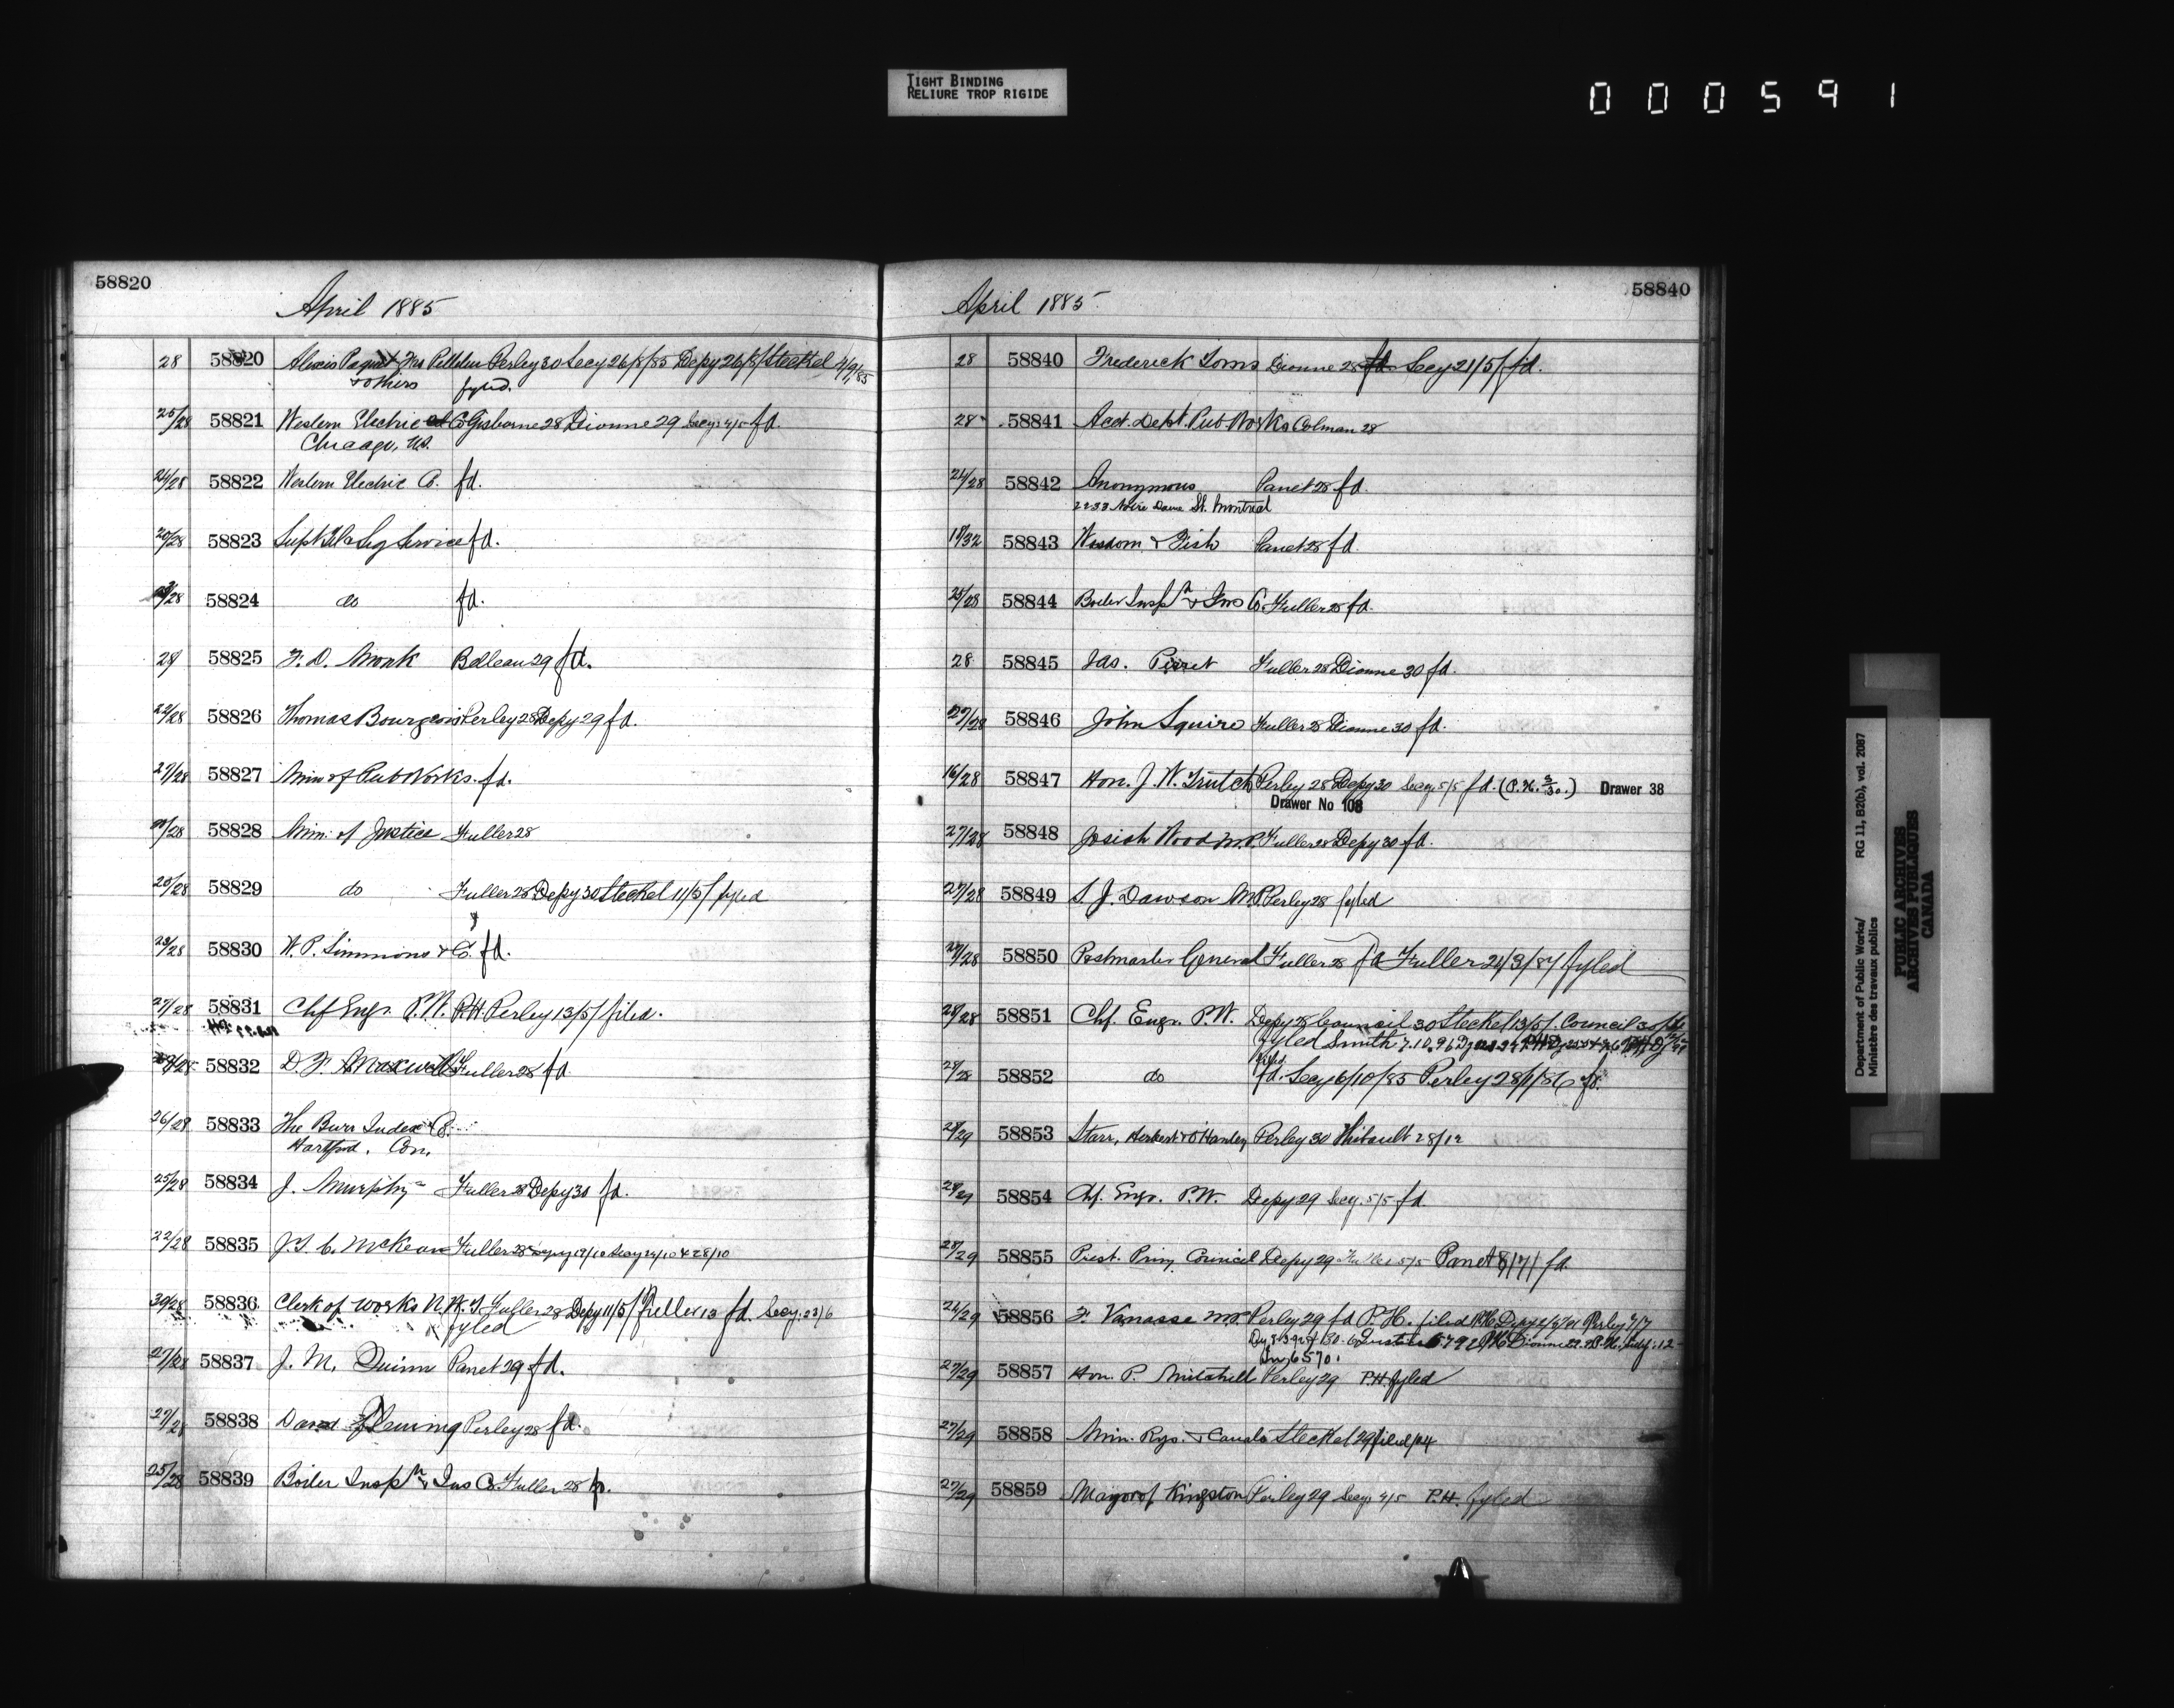 TIGHT BINDING
RELIURE TROP RIGIDE
000591
58820
April 1885
28 58820 Alexis Paquet Perley 30 Secy 26/8/85 Depy 26/8/ Steckel
& others fyled.
25/28 58821 Western Electric Co Gisborne 28 Dionne 29 Secy 4/5 fd.
Chicago, U.S.
24/28 58822 Western Electric Co. fd.
20/28 58823 Supt Tel & Sig Service fd.
58824 do fd.
28/ 58825 F. D. Monk Belleau 29 fd.
22/28 58826 Thomas Bourgeois Perley 28 Depy 29 fd.
27/28 58827 Min of Pub Works. fd.
58828 Min. of Justice Fuller 28
20/28 58829 do Fuller 28 Depy 30 Steckel 11/5/ fyled
23/28 58830 W. P. Simmons & Co. fd.
27/28 58831 Chf Engr. P.W. P.H. Perley 13/5/ filed.
58832 D. F. Maxwell Fuller 28 fd
26/28 58833 The Burr Index Co.
Hartford. Con.
25/28 58834 J. Murphy Fuller 28 Depy 30 fd.
22/28 58835 J. T. C. McKean Fuller 28
58836 Clerk of Works N.W.T Fuller 28 Depy 11/5/ Fuller 13 fd. Secy. 23/6
fyled
27/28 58837 J. M. Quinn Panet 29 fd.
27/28 58838 David Fleming Perley 28 fd.
25/28 58839 Boiler Inspn & Ins Co. Fuller 28
58840
April 1885
28 58840 Frederick Toms Dionne 28 fd Secy 21/5/ fd.
28 58841 Acct. Dept. Pub Works Colman 28
24/28 58842 Anonymous Panet 28 fd.
2233 Notre Dame St. Montreal
58843 Wisdom & Fish Panet 28 fd
25/28 58844 Boiler Inspn & Ins Co. Fuller 28 fd.
28 58845 Jas. Fuller 28 Dionne 30 fd.
27/28 58846 John Squire Fuller 28 Dionne 30 fd.
16/28 58847 Hon. J. W. Trutch Perley 28 Depy 30 Secy 5/5 fd. Drawer 38
Drawer No 108
27/28 58848 Josiah Wood M.P. Fuller 28 Depy 30 fd.
27/28 58849 S. J. Dawson M.P. Perley 28 fyled
27/28 58850 Postmaster General Fuller 28 fd Fuller 24/3/87 fyled
28/28 58851 Chf. Engr. P.W. Depy 28 Council 30 Steckel 13/5/. Council
fyled Smith 7.10.96
58852 do fd. Secy 6/10/85 Perley 28/1/86 fd.
28/29 58853 Starr, Herbert & O'Hanley Perley 30 Thibault 28/12
28/29 58854 Chf. Engr. P.W. Depy 29 Secy. 5/5 fd.
28/29 58855 Prest. Privy Council Depy 29 Fuller 5/5 Panet 8/7/ fd
24/29 58856 F. Vanasse M.P. Perley 29 fd P.H. filed
27/29 58857 Hon. P. Mitchell Perley 29 P.H. fyled
27/29 58858 Min. Rys. & Canals Steckel 29
27/29 58859 Mayor of Kingston Perley 29 Secy 4/5 P.H. fyled
Department of Public Works/ RG 11, B2(b), vol. 2087
Ministère des travaux publics
PUBLIC ARCHIVES
ARCHIVES PUBLIQUES
CANADA